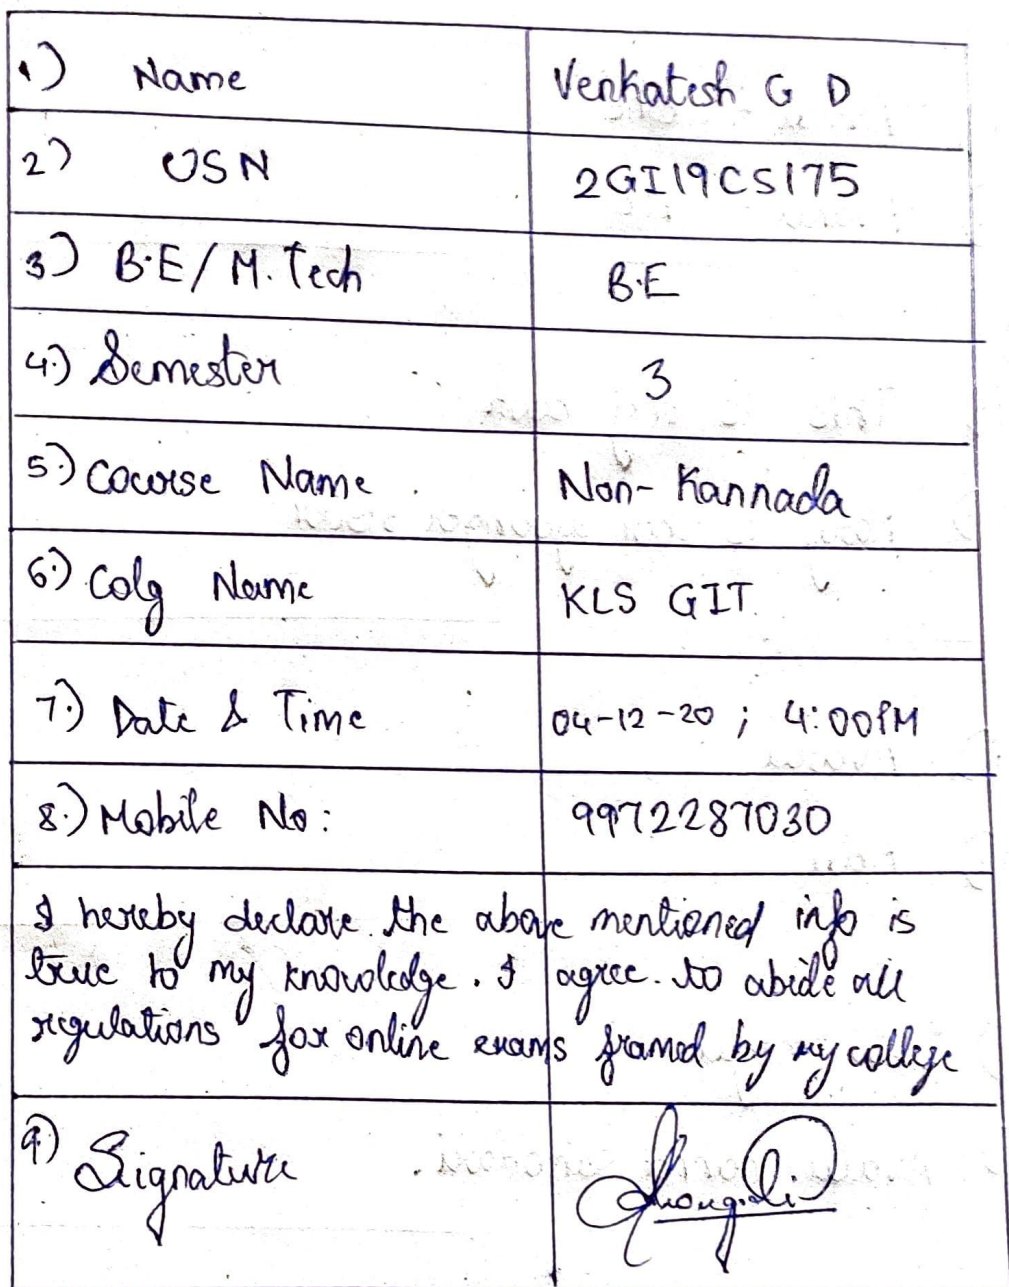 1.) Name Venkatesh G D
2) USN 2GI19CS175
3) B.E/M.Tech B.E
4.) Semester 3
5.) Course Name Non-Kannada
6.) Colg Name KLS GIT
7.) Date & Time 04-12-20 ; 4:00PM
8.) Mobile No: 9972287030
I hereby declare the above mentioned info is
true to my knowledge. I agree to abide all
regulations for online exams framed by my college
9.) Signature